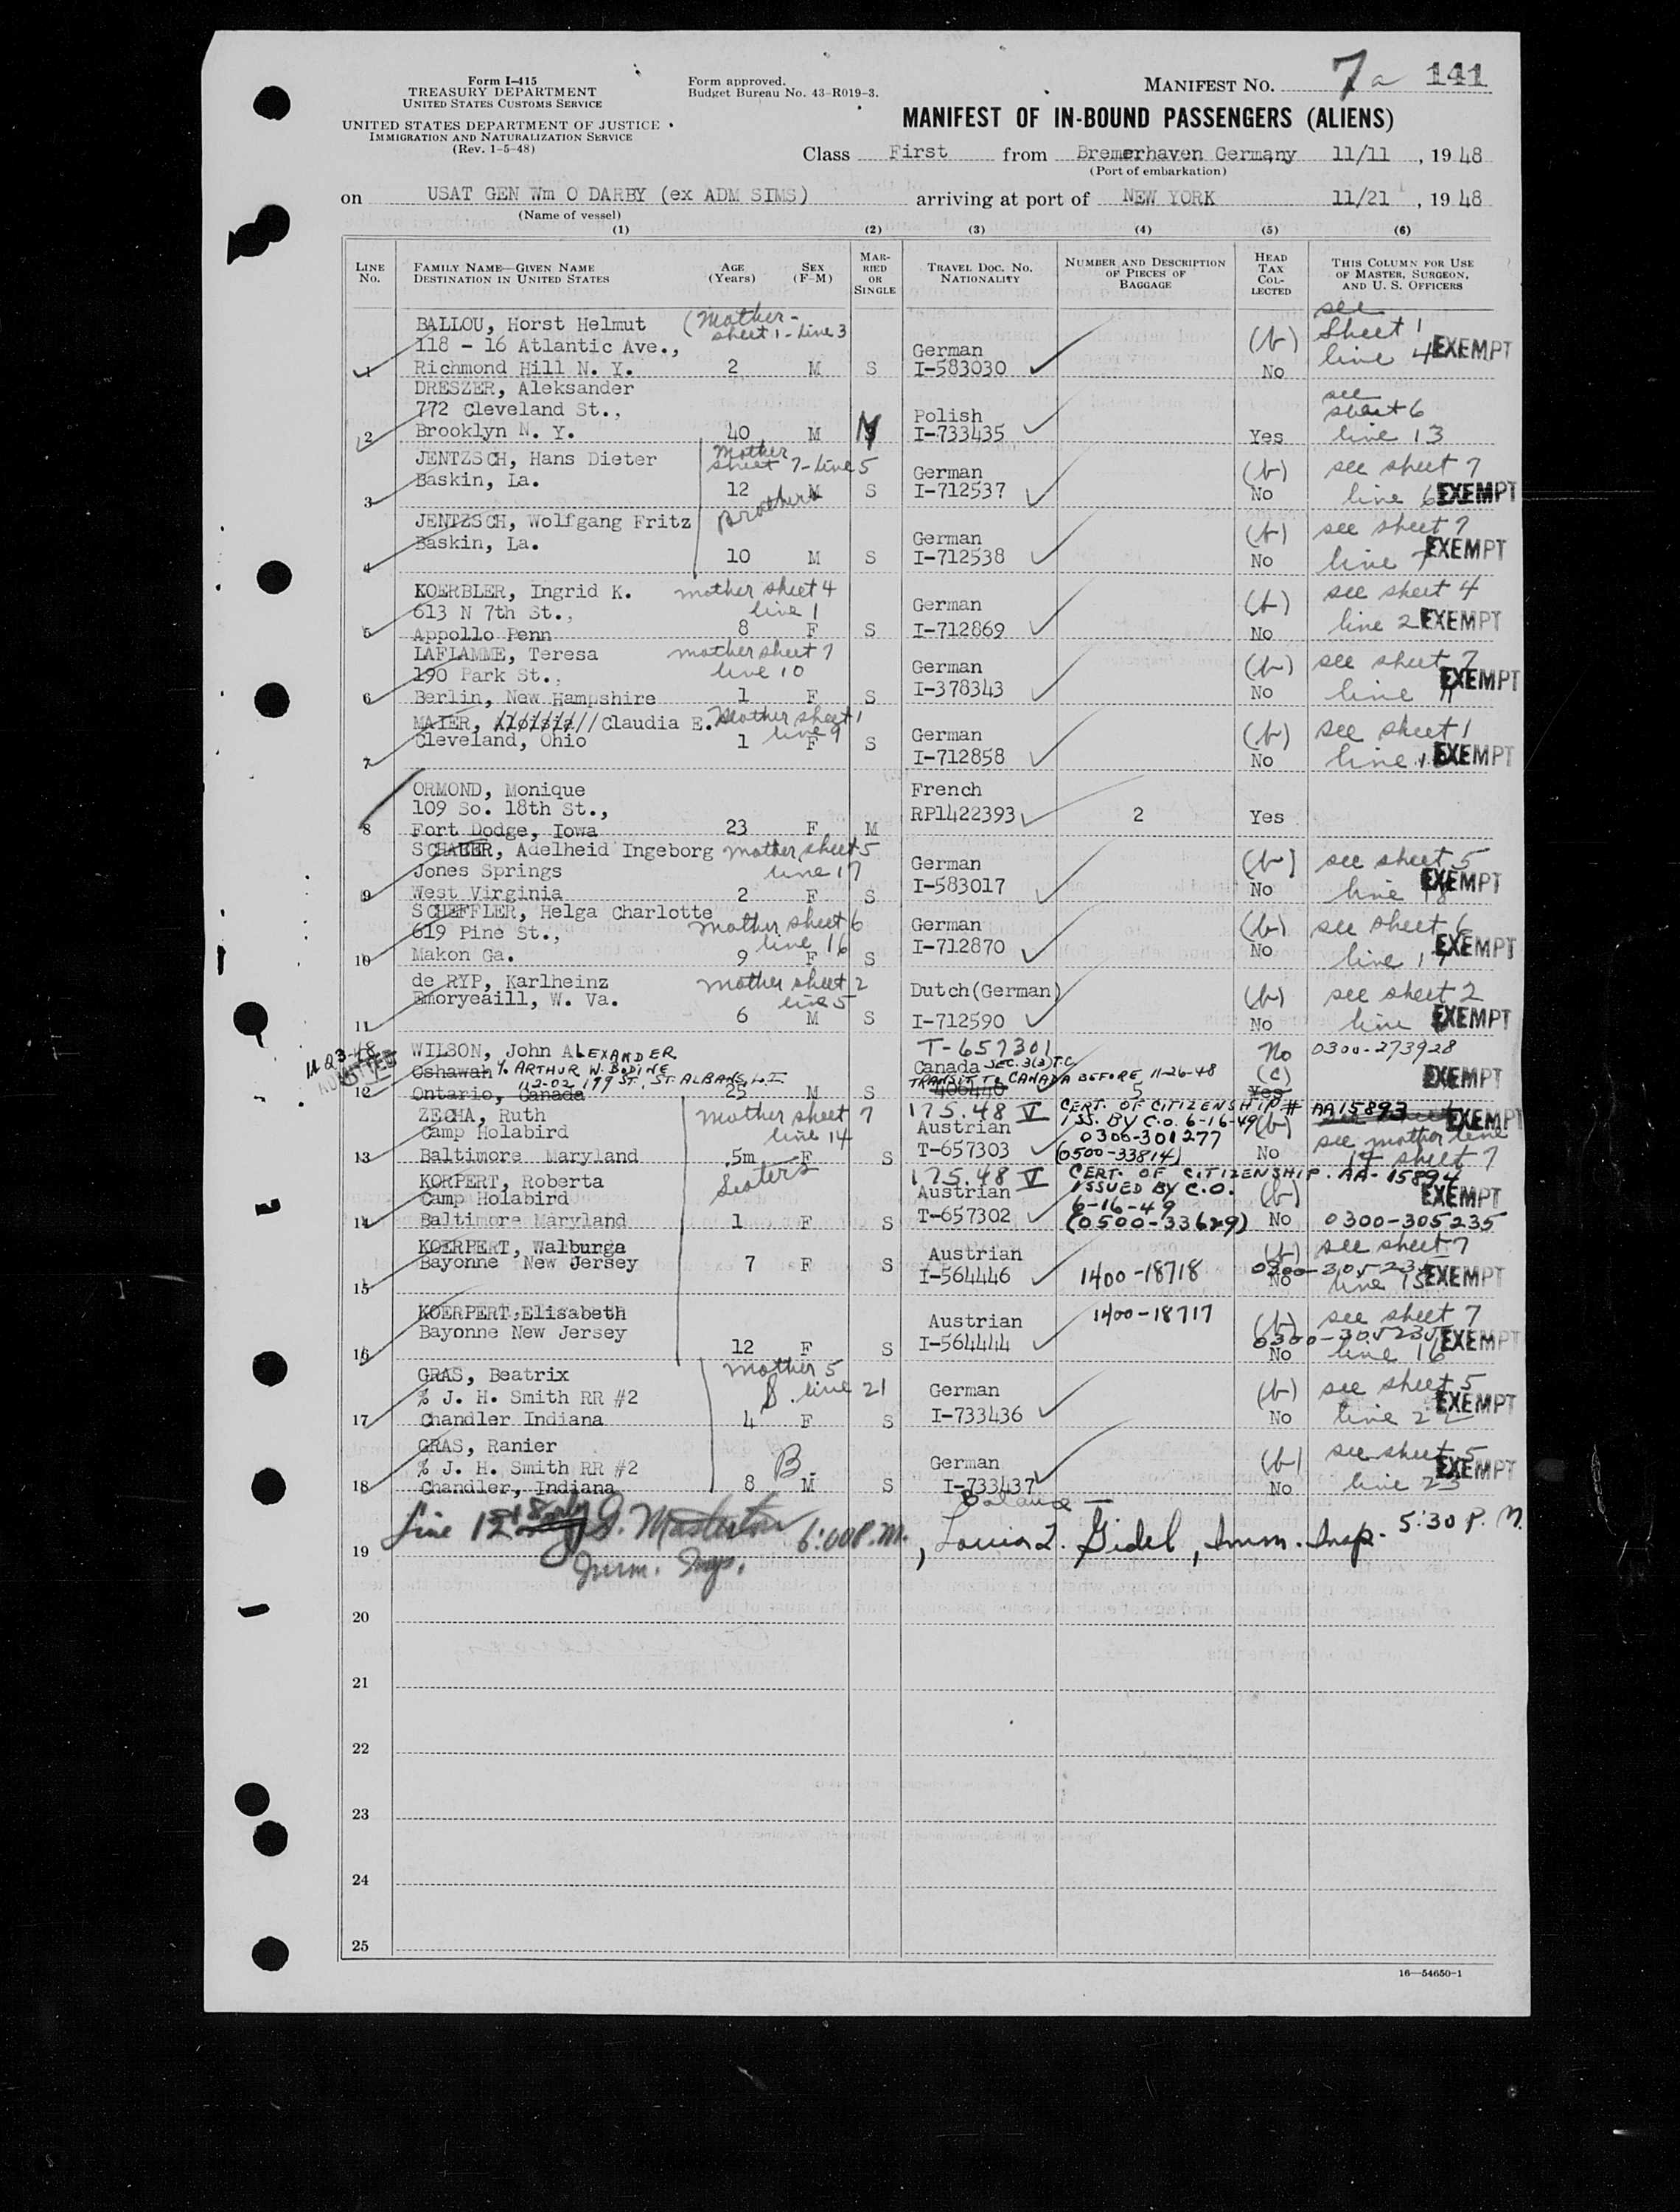 Form I-415
TREASURY DEPARTMENT
UNITED STATES CUSTOMS SERVICE
UNITED STATES DEPARTMENT OF JUSTICE
IMMIGRATION AND NATURALIZATION SERVICE
(Rev. 1-5-48)
Form approved.
Budget Bureau No. 43-R019-3.
MANIFEST NO. 7a 141
MANIFEST OF IN-BOUND PASSENGERS (ALIENS)
Class First from Bremerhaven Germany 11/11, 1948
(Port of embarkation)
on USAT GEN Wm O DARBY (ex ADM SIMS) arriving at port of NEW YORK 11/21, 1948
(Name of vessel)
(1) (2) (3) (4) (5) (6)
LINE NO. FAMILY NAME—GIVEN NAME DESTINATION IN UNITED STATES AGE (Years) SEX (F-M) MARRIED OR SINGLE TRAVEL DOC. NO. NATIONALITY NUMBER AND DESCRIPTION OF PIECES OF BAGGAGE HEAD TAX COLLECTED THIS COLUMN FOR USE OF MASTER, SURGEON, AND U. S. OFFICERS
BALLOU, Horst Helmut (Mother - sheet 1 - line 3 see
118 - 16 Atlantic Ave., German (b) Sheet 1
1 Richmond Hill N. Y. 2 M S I-583030 No line 4 EXEMPT
DRESZER, Aleksander see
772 Cleveland St., Polish sheet 6
2 Brooklyn N. Y. 40 M M I-733435 Yes line 13
JENTZSCH, Hans Dieter Mother sheet 7 - line 5 German (b) see sheet 7
3 Baskin, La. 12 M S I-712537 No line 6 EXEMPT
Brothers
JENTZSCH, Wolfgang Fritz German (b) see sheet 7
4 Baskin, La. 10 M S I-712538 No line 7 EXEMPT
KOERBLER, Ingrid K. mother sheet 4 see sheet 4
613 N 7th St., line 1 German (b)
5 Appollo Penn 8 F S I-712869 No line 2 EXEMPT
LAFLAMME, Teresa mother sheet 7 see sheet 7
190 Park St., line 10 German (b)
6 Berlin, New Hampshire 1 F S I-378343 No line 11 EXEMPT
MAIER, Claudia E. Mother sheet 1 line 9 German (b) see sheet 1
7 Cleveland, Ohio 1 F S I-712858 No line 10 EXEMPT
ORMOND, Monique French
109 So. 18th St., RP1422393 2 Yes
8 Fort Dodge, Iowa 23 F M
SCHAUER, Adelheid Ingeborg mother sheet 5
Jones Springs line 17 German (b) see sheet 5
9 West Virginia 2 F S I-583017 No line 18 EXEMPT
SCHEFFLER, Helga Charlotte mother sheet 6
619 Pine St., line 16 German (b) see sheet 6
10 Makon Ga. 9 F S I-712870 No line 17 EXEMPT
de RYP, Karlheinz mother sheet 2 Dutch(German) (b) see sheet 2
Emoryeaill, W. Va. line 5
11 6 M S I-712590 No line EXEMPT
WILSON, John ALEXANDER T-657301 No 0300-273928
Oshawah % ARTHUR W. BODINE Canada SEC. 3(3) T.C. (C)
112-02, 199 ST, ST. ALBANS, L.I. TRANSIT TO CANADA BEFORE 11-26-48
12 Ontario, Canada 25 M S 5 Yes EXEMPT
ZECHA, Ruth Mother sheet 7 175.48 V CERT. OF CITIZENSHIP # AA15893 EXEMPT
Camp Holabird line 14 Austrian ISS. BY C.O. 6-16-49 (b)
0300-301277 see mother line
13 Baltimore Maryland 5m F S T-657303 (0500-33814) No 14 sheet 7
Sisters
KORPERT, Roberta 175.48 V CERT. OF CITIZENSHIP. AA-15894
Camp Holabird Austrian ISSUED BY C.O. (b) EXEMPT
6-16-49
14 Baltimore Maryland 1 F S T-657302 (0500-33629) No 0300-305235
KOERPERT, Walburga Austrian (b) see sheet 7
15 Bayonne New Jersey 7 F S I-564446 1400-18718 No line 15 EXEMPT
KOERPERT, Elisabeth Austrian 1400-18717 (b) see sheet 7
Bayonne New Jersey 0300-305235
16 12 F S I-564444 No line 16 EXEMPT
GRAS, Beatrix mother 5
% J. H. Smith RR #2 S. line 21 German (b) see sheet 5
17 Chandler Indiana 4 F S I-733436 No line 22 EXEMPT
GRAS, Ranier
% J. H. Smith RR #2 B. German (b) see sheet 5
18 Chandler, Indiana 8 M S I-733437 No line 23 EXEMPT
Balance —
Line 12 6:00 P.M. Louis L. Gidel, Imm. Insp. 5:30 P. M.
Imm. Insp.
19
20
21
22
23
24
25
16—54650-1